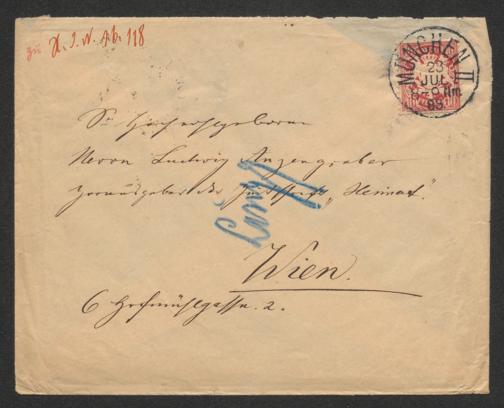 zu H. I. N. Ab. 118
MÜNCHEN II
23
JUL.
8-9 Nm.
83
Sr. Hochwohlgeboren
Herrn Ludwig Anzengruber
Herausgeber der Zeitschrift „Heimat“.
Wien.
6 Hofmühlgasse. 2.